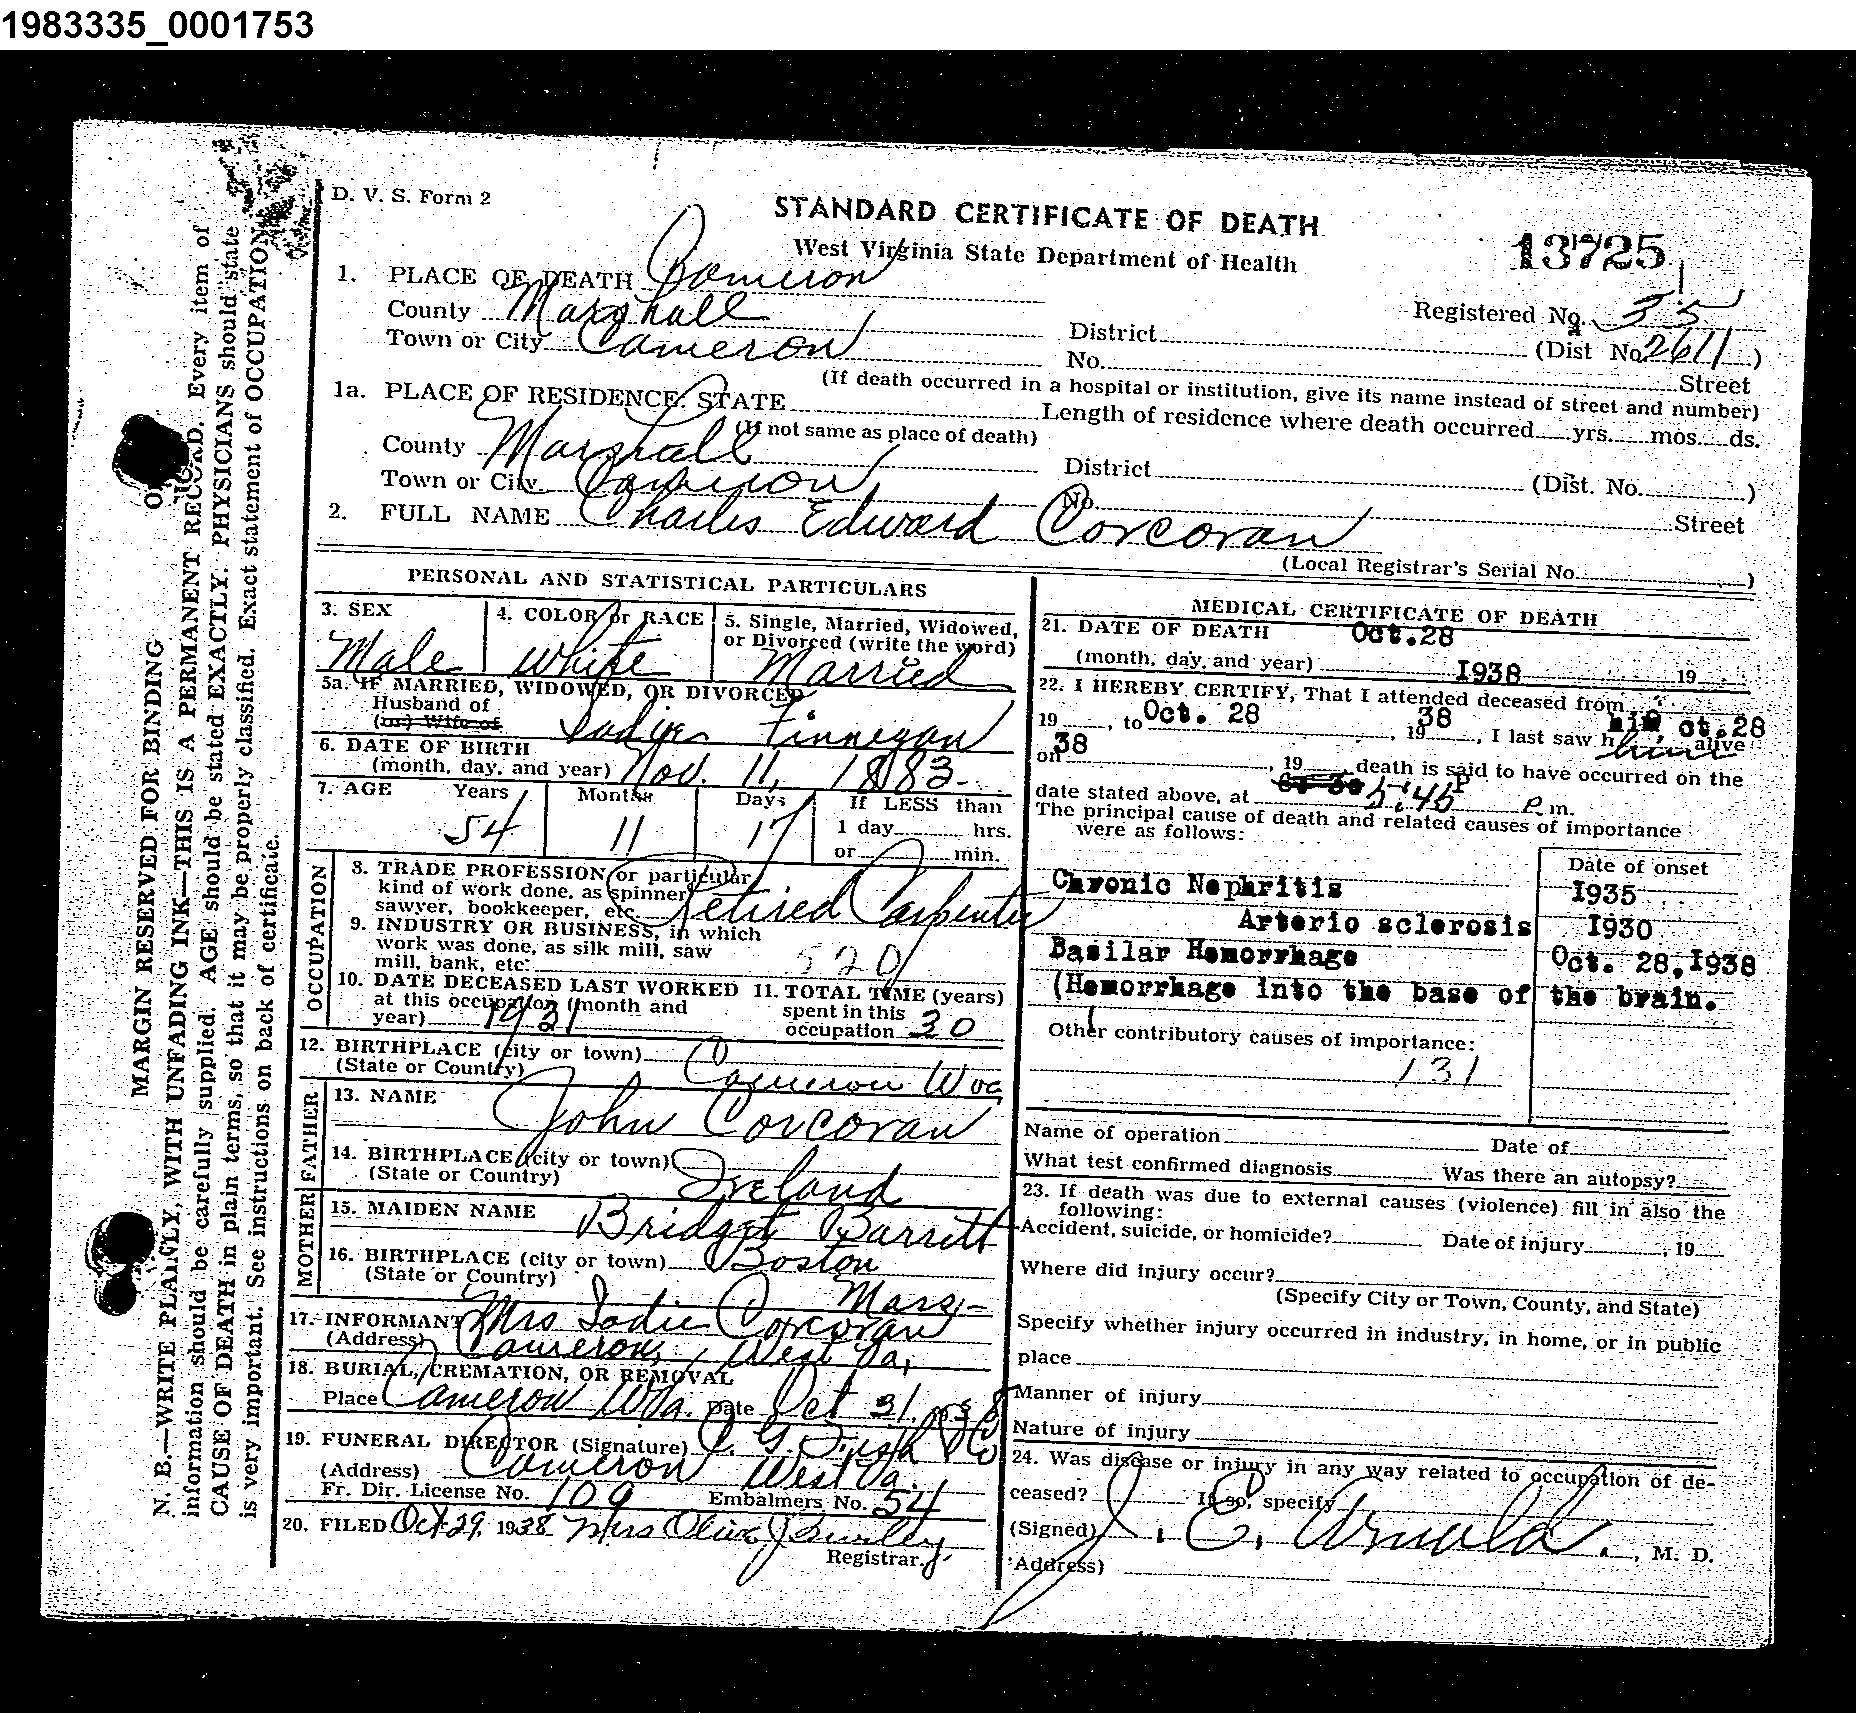 1983335_0001753
D. V. S. Form 2
STANDARD CERTIFICATE OF DEATH
West Virginia State Department of Health
13725
1. PLACE OF DEATH Cameron
County Marshall
Registered No. 35
Town or City Cameron District (Dist No. 2611)
No. Street
(If death occurred in a hospital or institution, give its name instead of street and number)
1a. PLACE OF RESIDENCE: STATE Length of residence where death occurred yrs. mos. ds.
(If not same as place of death)
County Marshall District (Dist. No. )
Town or City Cameron No. Street
2. FULL NAME Charles Edward Corcoran
(Local Registrar's Serial No. )
PERSONAL AND STATISTICAL PARTICULARS
3. SEX
Male
4. COLOR or RACE
White
5. Single, Married, Widowed,
or Divorced (write the word)
Married
5a. IF MARRIED, WIDOWED, OR DIVORCED
Husband of
(or) Wife of Sadie Finnegan
6. DATE OF BIRTH
(month, day, and year) Nov. 11, 1883
7. AGE Years Months Days If LESS than
54 11 17 1 day hrs.
or min.
OCCUPATION
8. TRADE PROFESSION or particular
kind of work done, as spinner,
sawyer, bookkeeper, etc. Retired Carpenter
9. INDUSTRY OR BUSINESS, in which
work was done, as silk mill, saw
mill, bank, etc. 520
10. DATE DECEASED LAST WORKED
at this occupation (month and
year) 1931
11. TOTAL TIME (years)
spent in this
occupation 30
12. BIRTHPLACE (city or town)
(State or Country) Cameron W va
FATHER
13. NAME John Corcoran
14. BIRTHPLACE (city or town)
(State or Country) Ireland
MOTHER
15. MAIDEN NAME Bridget Barrett
16. BIRTHPLACE (city or town) Boston
(State or Country) Mass
17. INFORMANT Mrs Sadie Corcoran
(Address) Cameron, West Va.
18. BURIAL, CREMATION, OR REMOVAL
Place Cameron W Va. Date Oct 31, 1938
19. FUNERAL DIRECTOR (Signature)
(Address) Cameron West Va.
Fr. Dir. License No. 109 Embalmers No. 54
20. FILED Oct 29, 1938 Mrs Olive J
Registrar.
MEDICAL CERTIFICATE OF DEATH
21. DATE OF DEATH Oct.28
(month, day, and year) I938 19
22. I HEREBY CERTIFY, That I attended deceased from
19 , to Oct. 28 , 19 38 , I last saw h him alive Oct.28
on 38 , 19 , death is said to have occurred on the
date stated above, at 5:45 P P.m.
The principal cause of death and related causes of importance
were as follows:
Date of onset
Chronic Nephritis I935
Arterio sclerosis I930
Basilar Hemorrhage Oct. 28,I938
(Hemorrhage into the base of the brain.
Other contributory causes of importance:
131
Name of operation Date of
What test confirmed diagnosis Was there an autopsy?
23. If death was due to external causes (violence) fill in also the
following:
Accident, suicide, or homicide? Date of injury , 19
Where did injury occur?
(Specify City or Town, County, and State)
Specify whether injury occurred in industry, in home, or in public
place
Manner of injury
Nature of injury
24. Was disease or injury in any way related to occupation of de-
ceased? If so, specify
(Signed) J. E. Arnold. , M. D.
(Address)
MARGIN RESERVED FOR BINDING
N. B.—WRITE PLAINLY, WITH UNFADING INK—THIS IS A PERMANENT RECORD. Every item of
information should be carefully supplied. AGE should be stated EXACTLY. PHYSICIANS should state
CAUSE OF DEATH in plain terms, so that it may be properly classified. Exact statement of OCCUPATION
is very important. See instructions on back of certificate.